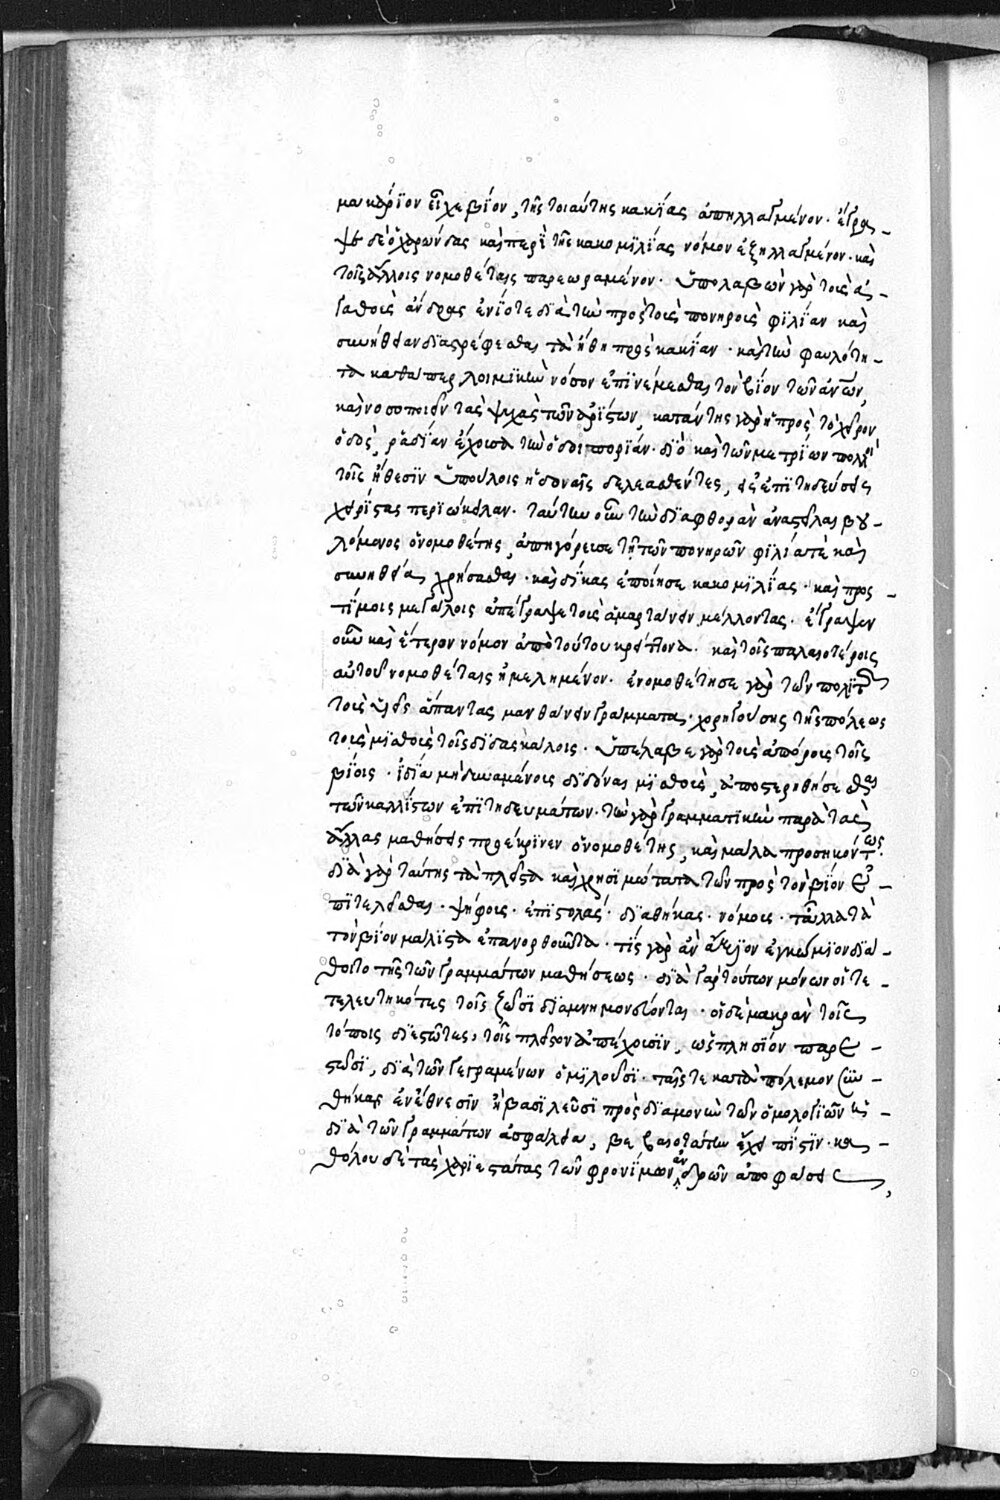 μακάριον εἶχε βίον, τῆς τοιαύτης κακίας ἀπηλλαγμένον. ἔγρα-
ψε δὲ ὁ χαρώνδας καὶ περὶ τῆς κακομιλίας νόμον ἐξηλλαγμένον. καὶ
τοῖς ἄλλοις νομοθέταις παρεωραμένον. ὑπολαβὼν γὰρ τοὺς ἀ-
γαθοὺς ἄνδρας ἐνίοτε διὰ τὴν πρὸς τοὺς πονηροὺς φιλίαν καὶ
συνήθειαν διαστρέφεσθαι τὰ ἤθη πρὸς κακίαν. καὶ τὴν φαυλότη-
τα καθάπερ λοιμικὴν νόσον ἐπινέμεσθαι τὸν βίον τῶν ἀνων,
καὶ νοσοποιεῖν τὰς ψυχὰς τῶν ἀρίστων, κατάντης γὰρ ἡ πρὸς τὸ χεῖρον
ὁδὸς, ῥαδίαν ἔχουσα τὴν ὁδοιπορίαν. διὸ καὶ τῶν μετρίων πολλοὶ
τοῖς ἤθεσιν ὑπούλοις ἡδοναῖς δελεασθέντες, εἰς ἐπιτηδεύσεις
χειρίστας περιώκειλαν. ταύτην οὖν τὴν διαφθορὰν ἀναστεῖλαι βου-
λόμενος ὁ νομοθέτης, ἀπηγόρευσε τῇ τῶν πονηρῶν φιλίᾳ τε καὶ
συνηθείᾳ χρήσασθαι. καὶ δίκας ἐποίησε κακομιλίας. καὶ προσ-
τίμοις μεγάλοις ἀπέτρεψε τοὺς ἁμαρτάνειν μέλλοντας. ἔγραψεν
οὖν καὶ ἕτερον νόμον ἀπὸ τούτου κρείττονα. καὶ τοῖς παλαιοτέροις
αὐτοῦ νομοθέταις ἠμελημένον. ἐνομοθέτησε γὰρ τῶν πολιτ
τοὺς υἱεῖς ἅπαντας μανθάνειν γράμματα. χορηγούσης τῆς πόλεως
τοὺς μισθοὺς τοῖς διδασκάλοις. ὑπέλαβε γὰρ τοὺς ἀπόρους τοῖς
βίοις. ἰδίᾳ μὴ δυναμένους διδόναι μισθοὺς, ἀποστερηθήσεσθαι
τῶν καλλίστων ἐπιτηδευμάτων. τὴν γὰρ γραμματικὴν παρὰ τὰς
ἄλλας μαθήσεις προέκρινεν ὁ νομοθέτης, καὶ μάλα προσηκόντως.
διὰ γὰρ ταύτης τὰ πλεῖστα καὶ χρησιμώτατα τῶν πρὸς τὸν βίον ἐ-
πιτελεῖσθαι. ψήφους. ἐπιστολάς. διαθήκας. νόμους. τἆλλα τὰ
τὸν βίον μάλιστα ἐπανορθοῦντα. τίς γὰρ ἂν ἄξιον ἐγκώμιον διά-
θοιτο τῆς τῶν γραμμάτων μαθήσεως. διὰ γὰρ τούτων μόνων οἵ τε
τετελευτηκότες τοῖς ζῶσι διαμνημονεύονται. οἱ δὲ μακρὰν τοῖς
τόποις διεστῶτες, τοῖς πλεῖστον ἀπέχουσιν, ὡς πλησίον παρε-
στῶσι, διὰ τῶν γεγραμένων ὁμιλοῦσι. ταῖς τε κατὰ πόλεμον συν-
θήκαις ἐν ἔθνεσιν ἢ βασιλεῦσι πρὸς διαμονὴν τῶν ὁμολογιῶν ἡ-
διὰ τῶν γραμμάτων ἀσφάλεια, βεβαιοτάτην ἔχει πίστιν. κα-
θόλου δὲ τὰς χαριεστάτας τῶν φρονίμων ἀνδρῶν ἀποφάσεις,